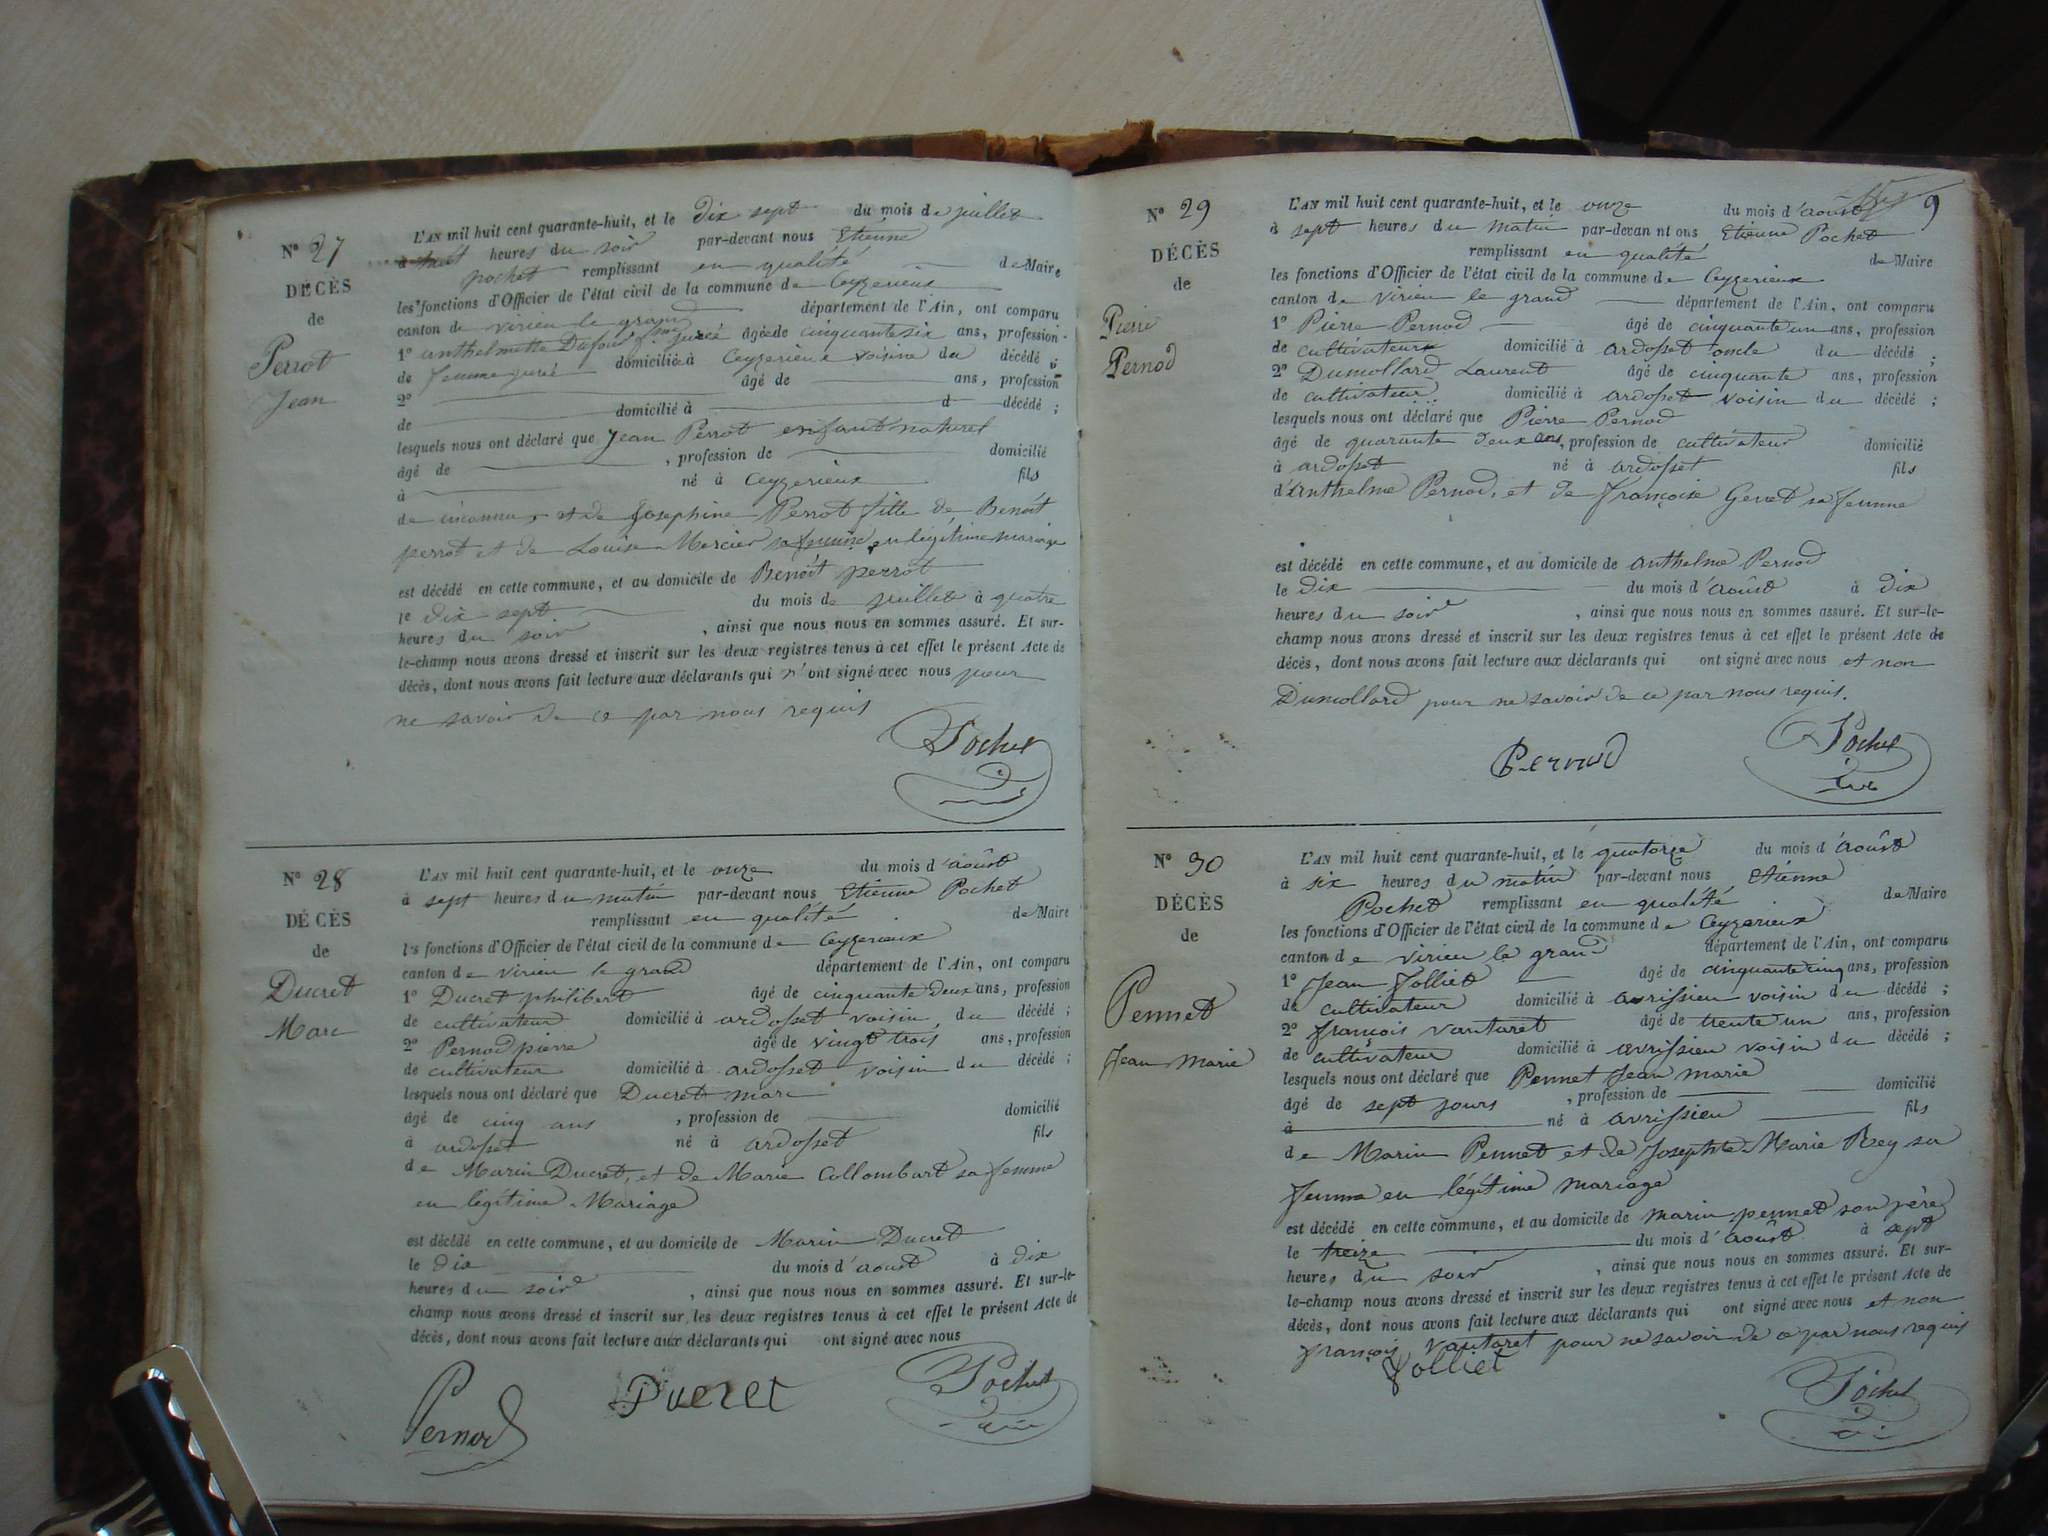 N° 27
DÉCÈS
de
Perrot
Jean
L'AN mil huit cent quarante-huit, et le dix sept du mois de juillet
à huit heures du soir par-devant nous Etienne
pochet remplissant en qualité de Maire
les fonctions d'Officier de l'état civil de la commune de Ceyzerieux
canton de virieu le grand département de l'Ain, ont comparu
1° anthelmette Dufour f.me jurée âgée de cinquante six ans, profession
de femme jurée domicilié à Ceyzerieux voisine du décédé
2° âgé de ans, profession
de domicilié à d décédé ;
lesquels nous ont déclaré que Jean Perrot enfant naturel
âgé de , profession de domicilié
à né à Ceyzerieux fils
de inconnu et de Josephine Perrot fille de Benoît
perrot et de Louise Mercier sa femme en légitime mariage
est décédé en cette commune, et au domicile de Benoît perrot
le dix sept du mois de juillet à quatre
heures du soir , ainsi que nous nous en sommes assuré. Et sur-
le-champ nous avons dressé et inscrit sur les deux registres tenus à cet effet le présent Acte de
décès, dont nous avons fait lecture aux déclarants qui n'ont signé avec nous pour
ne savoir de ce par nous requis
Pochet
N° 28
DÉCÈS
de
Ducret
Marc
L'AN mil huit cent quarante-huit, et le onze du mois d'aoûst
à sept heures du matin par-devant nous Etienne Pochet
remplissant en qualité de Maire
les fonctions d'Officier de l'état civil de la commune de Ceyzerieux
canton de virieu le grand département de l'Ain, ont comparu
1° Ducret philibert âgé de cinquante deux ans, profession
de cultivateur domicilié à ardosset voisin du décédé ;
2° Pernod pierre âgé de vingt trois ans, profession
de cultivateur domicilié à ardosset voisin du décédé ;
lesquels nous ont déclaré que Ducret marc
âgé de cinq ans , profession de domicilié
à ardosset né à ardosset fils
de Marin Ducret, et de Marie Collombart sa femme
en légitime Mariage
est décédé en cette commune, et au domicile de Marin Ducret
le dix du mois d'aoust à dix
heures du soir , ainsi que nous nous en sommes assuré. Et sur-le-
champ nous avons dressé et inscrit sur les deux registres tenus à cet effet le présent Acte de
décès, dont nous avons fait lecture aux déclarants qui ont signé avec nous
Pernod Ducret Pochet
9
N° 29
DÉCÈS
de
Pierre
Pernod
L'AN mil huit cent quarante-huit, et le onze du mois d'août
à sept heures du matin par-devan nt ous Etienne Pochet
remplissant en qualité de Maire
les fonctions d'Officier de l'état civil de la commune de Ceyzerieux
canton de virieu le grand département de l'Ain, ont comparu
1° Pierre Pernod âgé de cinquante un ans, profession
de cultivateur domicilié à ardosset oncle du décédé ;
2° Dumollard Laurent âgé de cinquante ans, profession
de cultivateur domicilié à ardosset voisin du décédé ;
lesquels nous ont déclaré que Pierre Pernod
âgé de quarante deux ans, profession de cultivateur domicilié
à ardosset né à ardosset fils
d'anthelme Pernod, et de françoise Genet sa femme
est décédé en cette commune, et au domicile de anthelme Pernod
le dix du mois d'août à dix
heures du soir , ainsi que nous nous en sommes assuré. Et sur-le-
champ nous avons dressé et inscrit sur les deux registres tenus à cet effet le présent Acte de
décès, dont nous avons fait lecture aux déclarants qui ont signé avec nous et non
Dumollard pour ne savoir de ce par nous requis.
Pernod Pochet
N° 30
DÉCÈS
de
Pennet
Jean Marie
L'AN mil huit cent quarante-huit, et le quatorze du mois d'aoûst
à six heures du matin par-devant nous Etienne
Pochet remplissant en qualité de Maire
les fonctions d'Officier de l'état civil de la commune de Ceyzerieux
canton de virieu le grand département de l'Ain, ont comparu
1° Jean Jolliet âgé de cinquante cinq ans, profession
de cultivateur domicilié à avrissieu voisin du décédé ;
2° françois vautaret âgé de trente un ans, profession
de cultivateur domicilié à avrissieu voisin du décédé ;
lesquels nous ont déclaré que Pennet Jean marie
âgé de sept jours , profession de domicilié
à né à avrissieu fils
de Marin Pennet et de Josephte Marie Rey sa
femme en légitime mariage
est décédé en cette commune, et au domicile de marin pennet son père
le treize du mois d'aoûst à sept
heures du soir , ainsi que nous nous en sommes assuré. Et sur-
le-champ nous avons dressé et inscrit sur les deux registres tenus à cet effet le présent Acte de
décès, dont nous avons fait lecture aux déclarants qui ont signé avec nous et non
françois vautaret pour ne savoir de ce par nous requis
Jolliet
Pochet